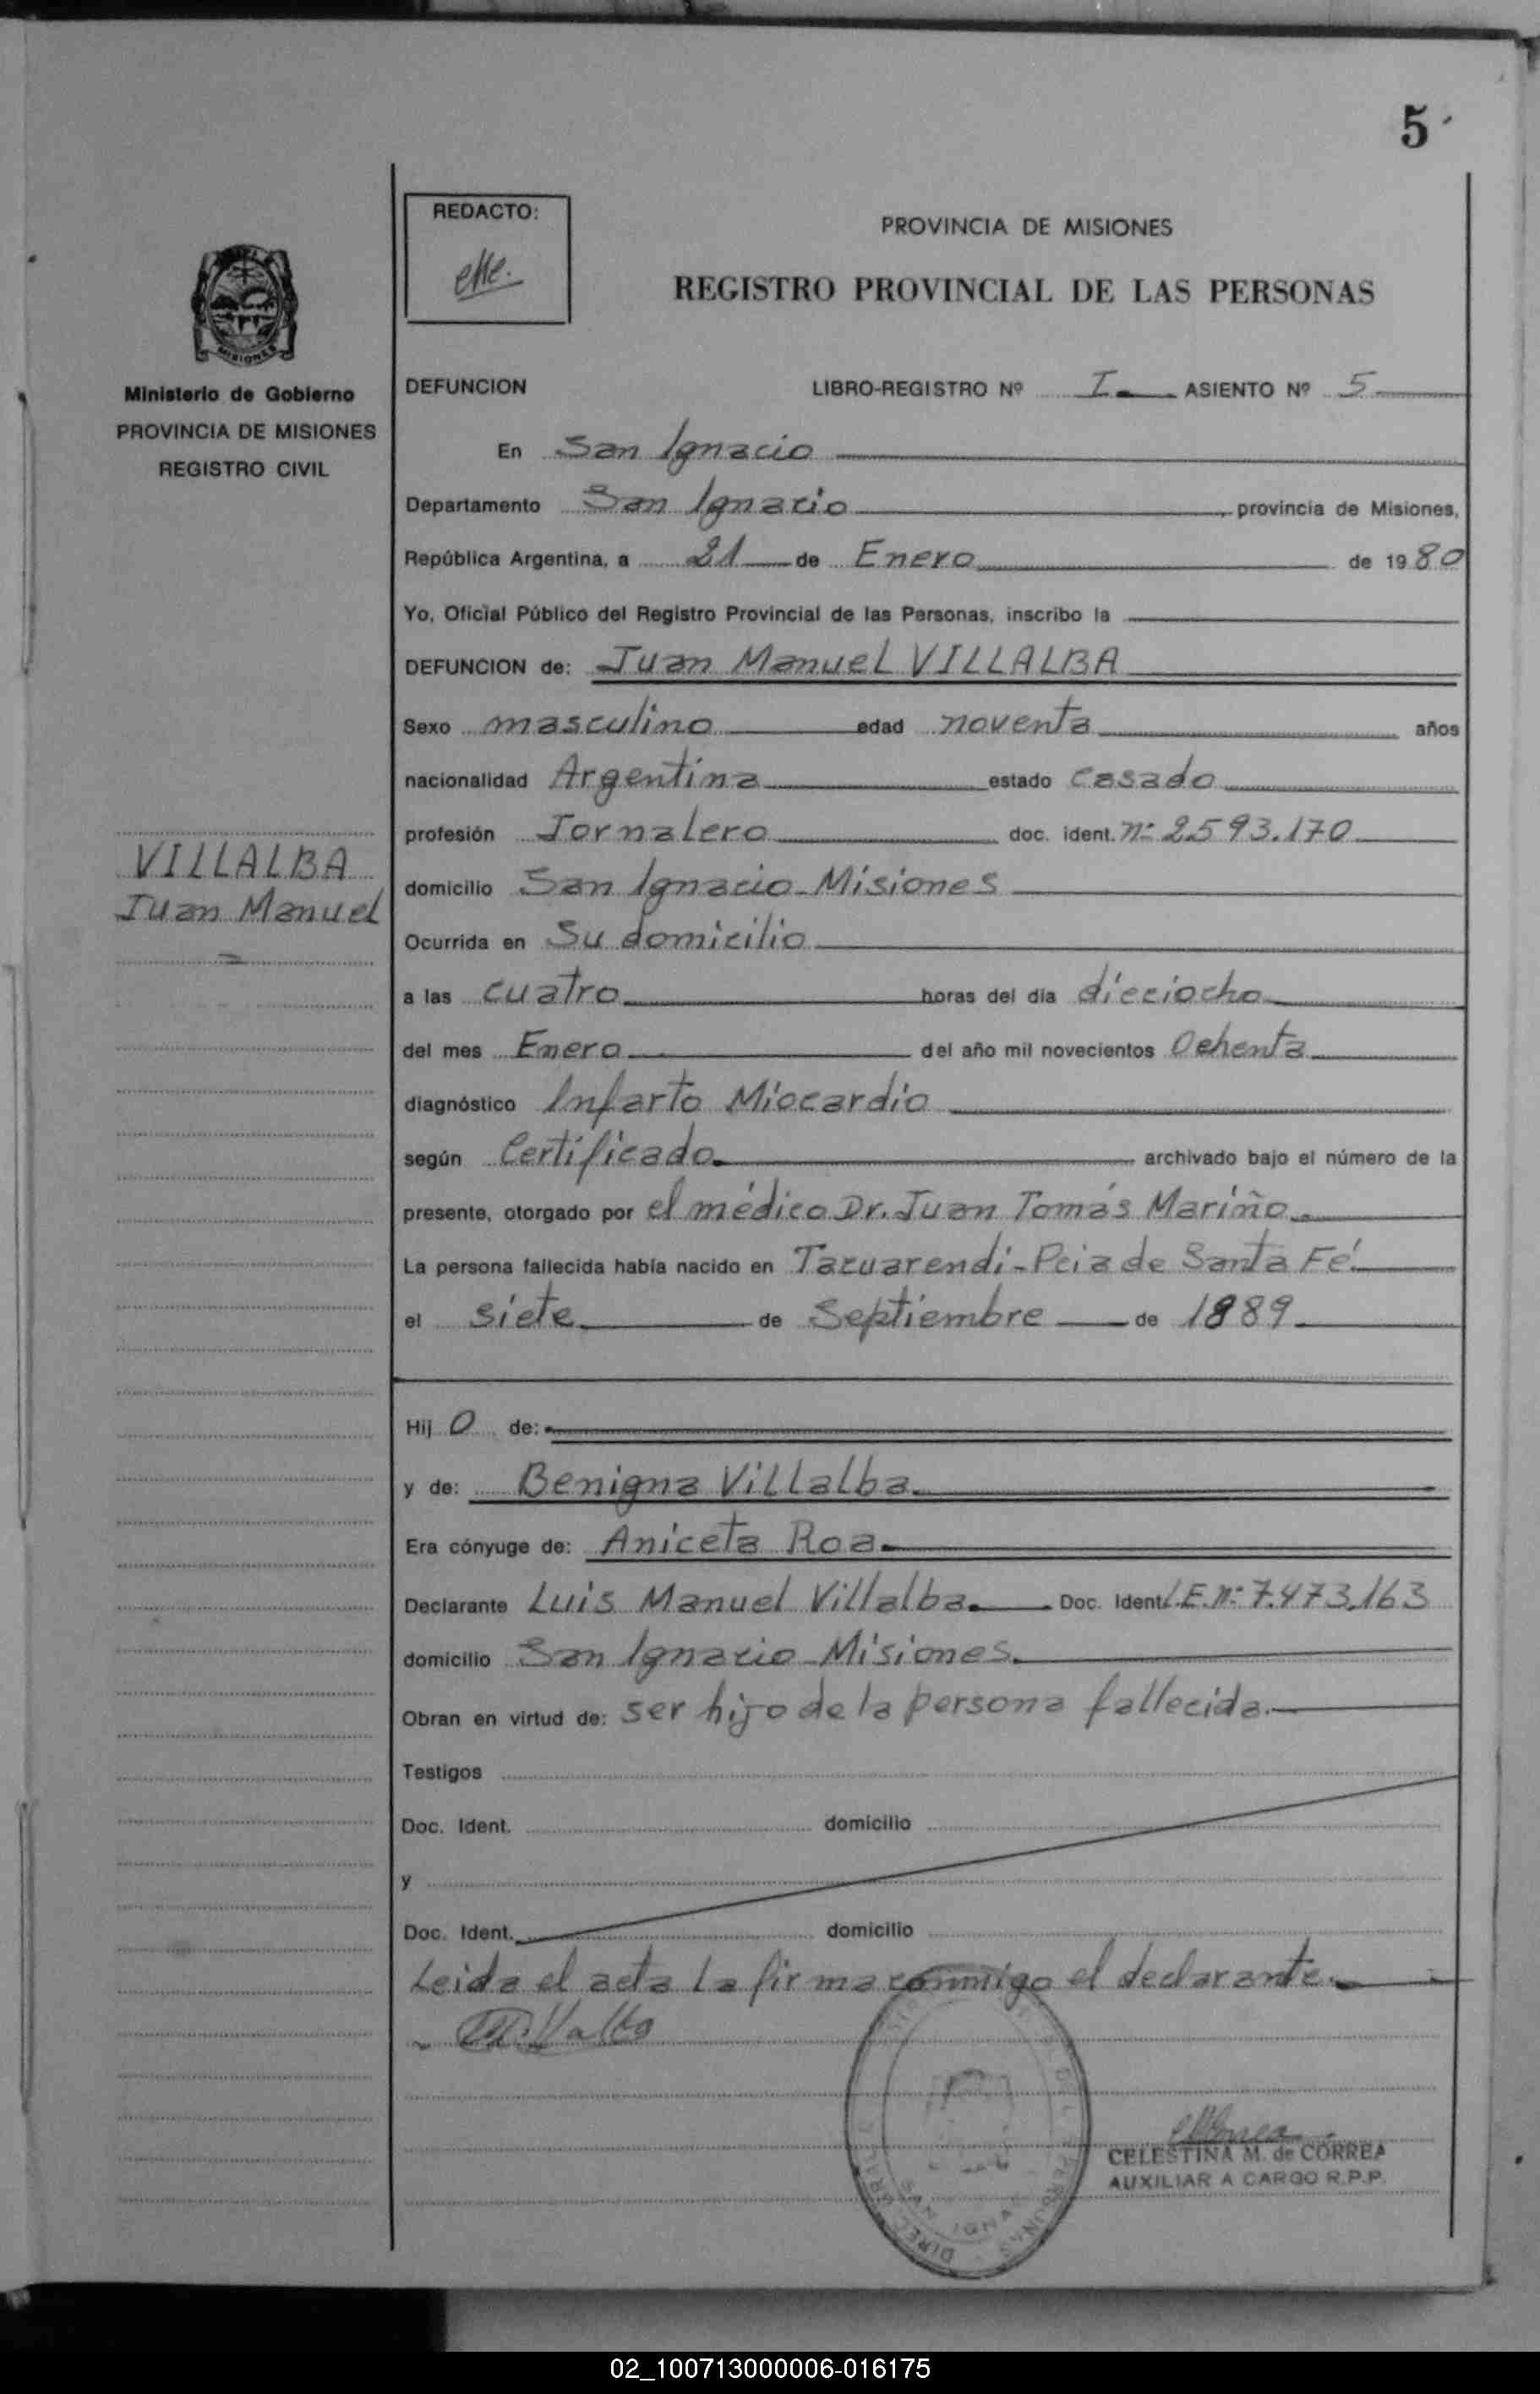 5
REDACTO:
PROVINCIA DE MISIONES
REGISTRO PROVINCIAL DE LAS PERSONAS
MISIONES
Ministerio de Gobierno
PROVINCIA DE MISIONES
REGISTRO CIVIL
DEFUNCION LIBRO-REGISTRO Nº I ASIENTO Nº 5
En San Ignacio
Departamento San Ignacio, provincia de Misiones,
República Argentina, a 21 de Enero de 1980
Yo, Oficial Público del Registro Provincial de las Personas, inscribo la
DEFUNCION de: Juan Manuel VILLALBA
Sexo masculino edad noventa años
nacionalidad Argentina estado casado
profesión Jornalero doc. ident. nº 2.593.170
VILLALBA
Juan Manuel
domicilio San Ignacio-Misiones
Ocurrida en Su domicilio
a las cuatro horas del día dieciocho
del mes Enero del año mil novecientos Ochenta
diagnóstico Infarto Miocardio
según Certificado archivado bajo el número de la
presente, otorgado por el médico Dr. Juan Tomás Mariño
La persona fallecida había nacido en Tacuarendí-Pcia de Santa Fé
el siete de Septiembre de 1889
Hij o de:
y de: Benigna Villalba
Era cónyuge de: Aniceta Roa
Declarante Luis Manuel Villalba Doc. Ident. L.E.nº 7.473.163
domicilio San Ignacio-Misiones
Obran en virtud de: ser hijo de la persona fallecida
Testigos
Doc. Ident. domicilio
y
Doc. Ident. domicilio
Leida el acta la firma conmigo el declarante
Villalba
CELESTINA M. de CORREA
AUXILIAR A CARGO R.P.P.
02_100713000006-016175